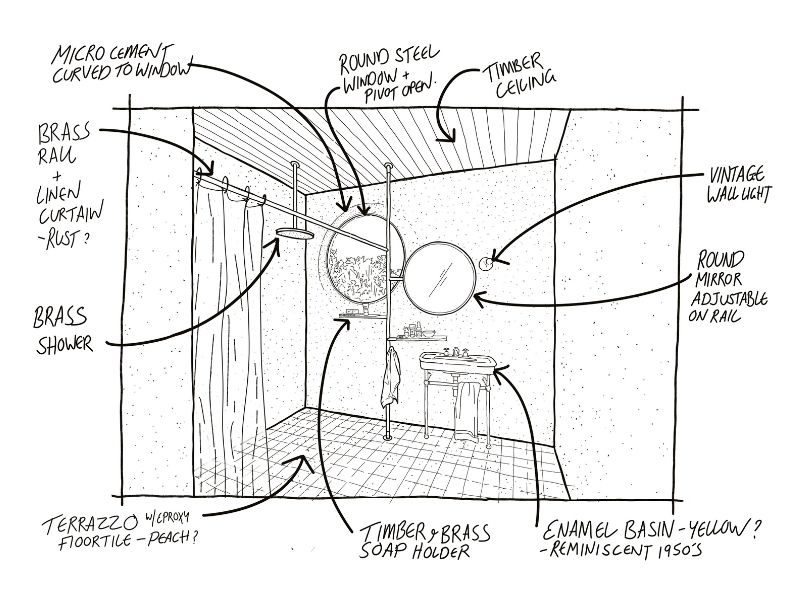 MICRO CEMENT
CURVED TO WINDOW
ROUND STEEL
WINDOW +
PIVOT OPEN.
TIMBER
CEILING
BRASS
RAIL
+
LINEN
CURTAIN
-RUST?
VINTAGE
WALL LIGHT
ROUND
MIRROR
ADJUSTABLE
ON RAIL
BRASS
SHOWER
TERRAZZO W/EPROXY
FLOORTILE - PEACH?
TIMBER & BRASS
SOAP HOLDER
ENAMEL BASIN - YELLOW?
-REMINISCENT 1950'S